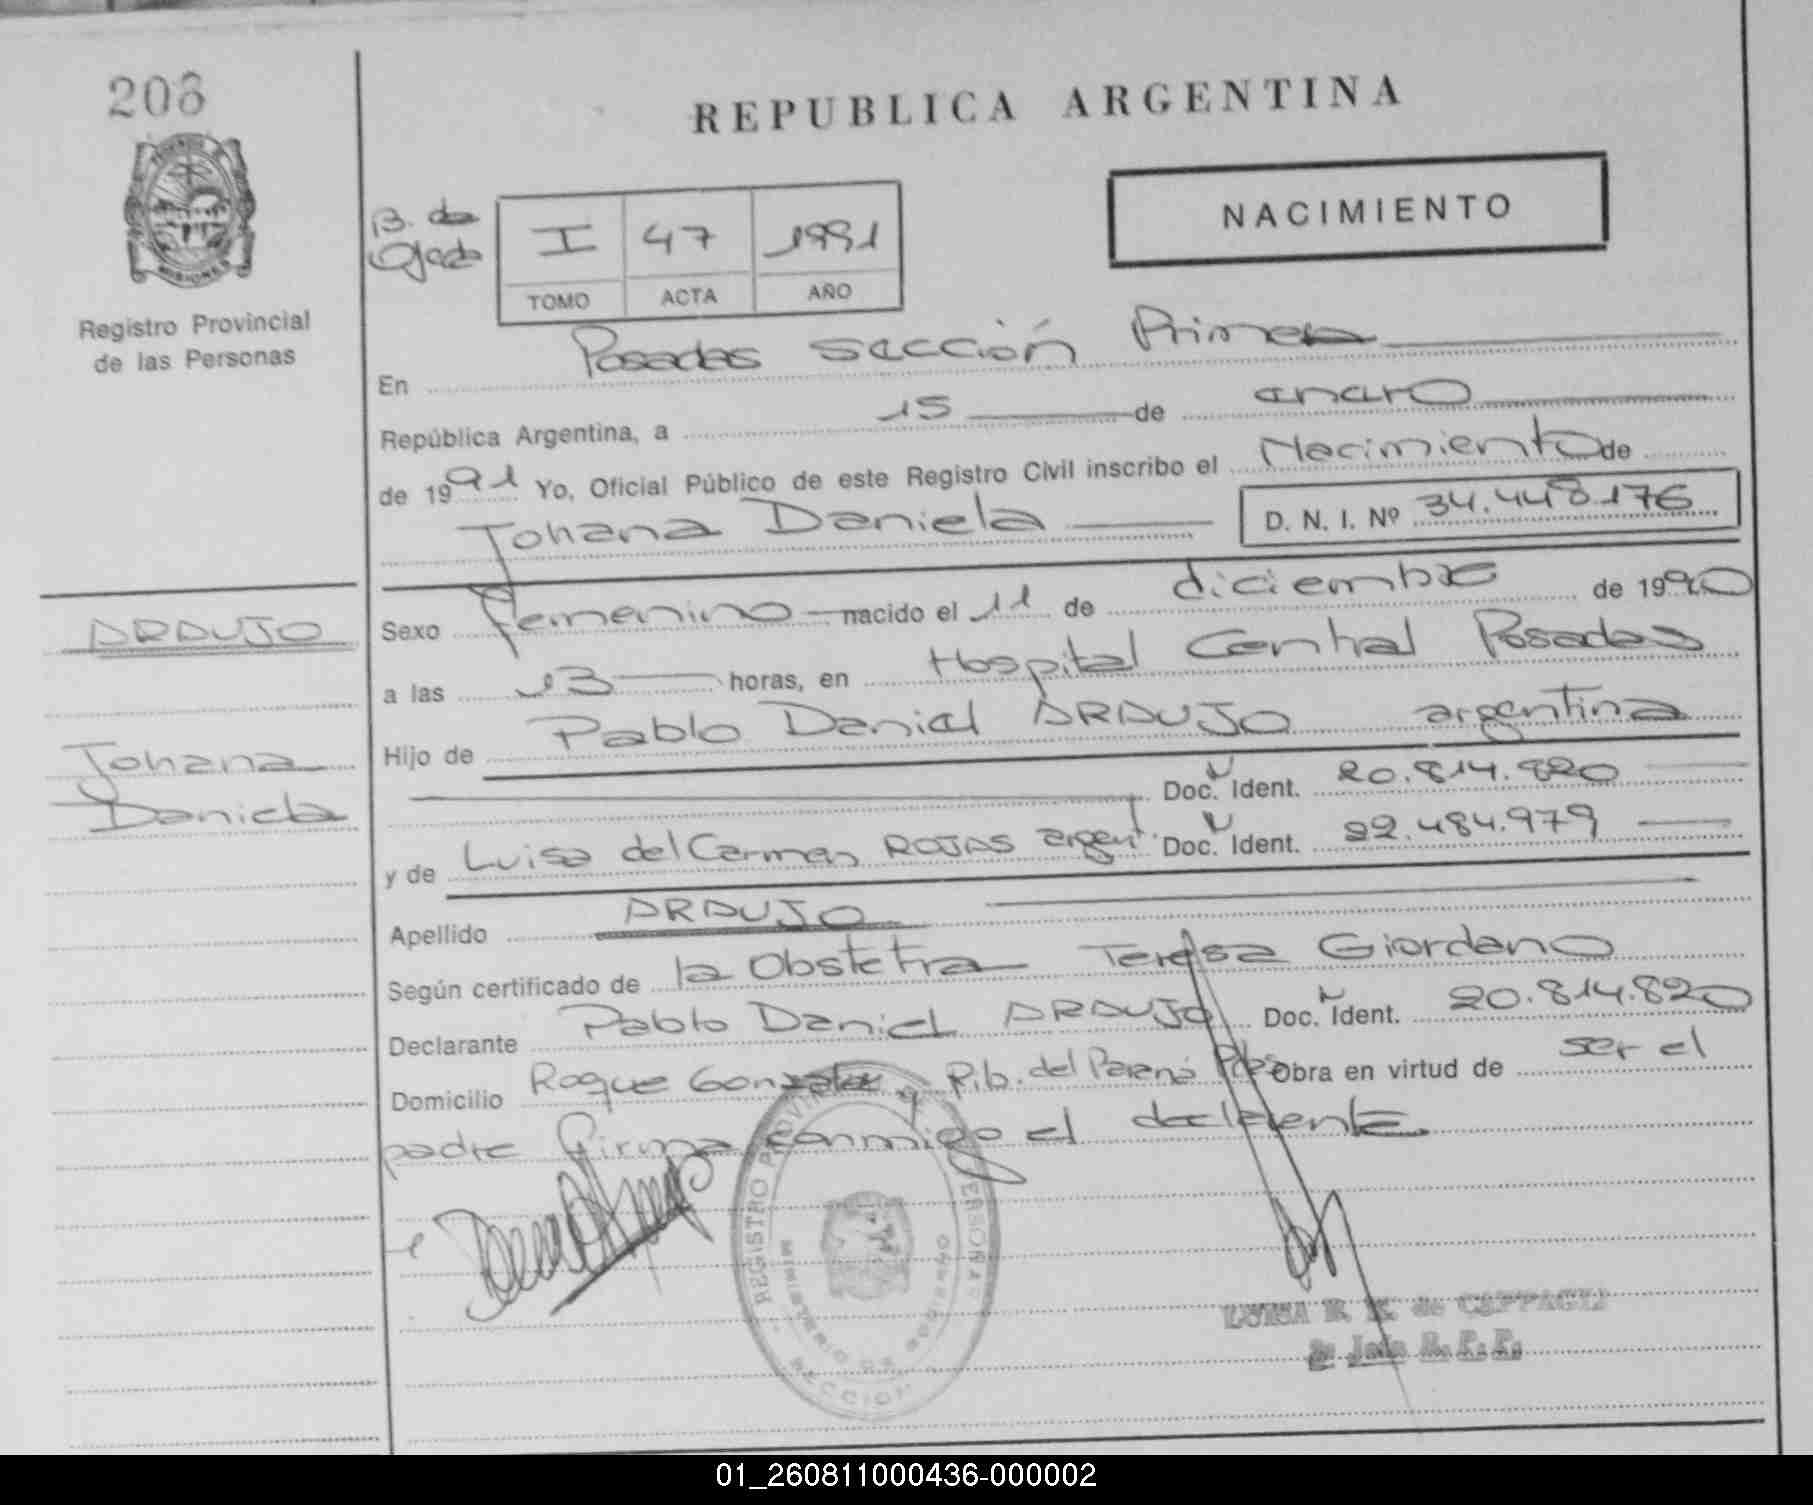 208
REPUBLICA ARGENTINA
NACIMIENTO
I 47 1991
TOMO ACTA AÑO
Registro Provincial
de las Personas
En Posadas Sección Primera
República Argentina, a 15 de enero
de 1991 Yo, Oficial Público de este Registro Civil inscribo el Nacimiento de
Johana Daniela D. N. I. Nº 34.448.176
ARAUJO
Johana
Daniela
Sexo femenino nacido el 11 de diciembre de 1990
a las 13 horas, en Hospital Central Posadas
Hijo de Pablo Daniel ARAUJO argentina
Doc. Ident. 20.814.820
y de Luisa del Carmen ROJAS argent. Doc. Ident. 22.484.979
Apellido ARAUJO
Según certificado de la Obstetra Teresa Giordano
Declarante Pablo Daniel ARAUJO Doc. Ident. 20.814.820
Domicilio Roque Gonzalez y Rib. del Paraná Pdas Obra en virtud de ser el
padre firma conmigo el declarente
REGISTRO PROVINCIAL PERSONAS
MINISTERIO DE GOBIERNO
SECCION
LUISA R. de
Jefe R. P. P.
01_260811000436-000002